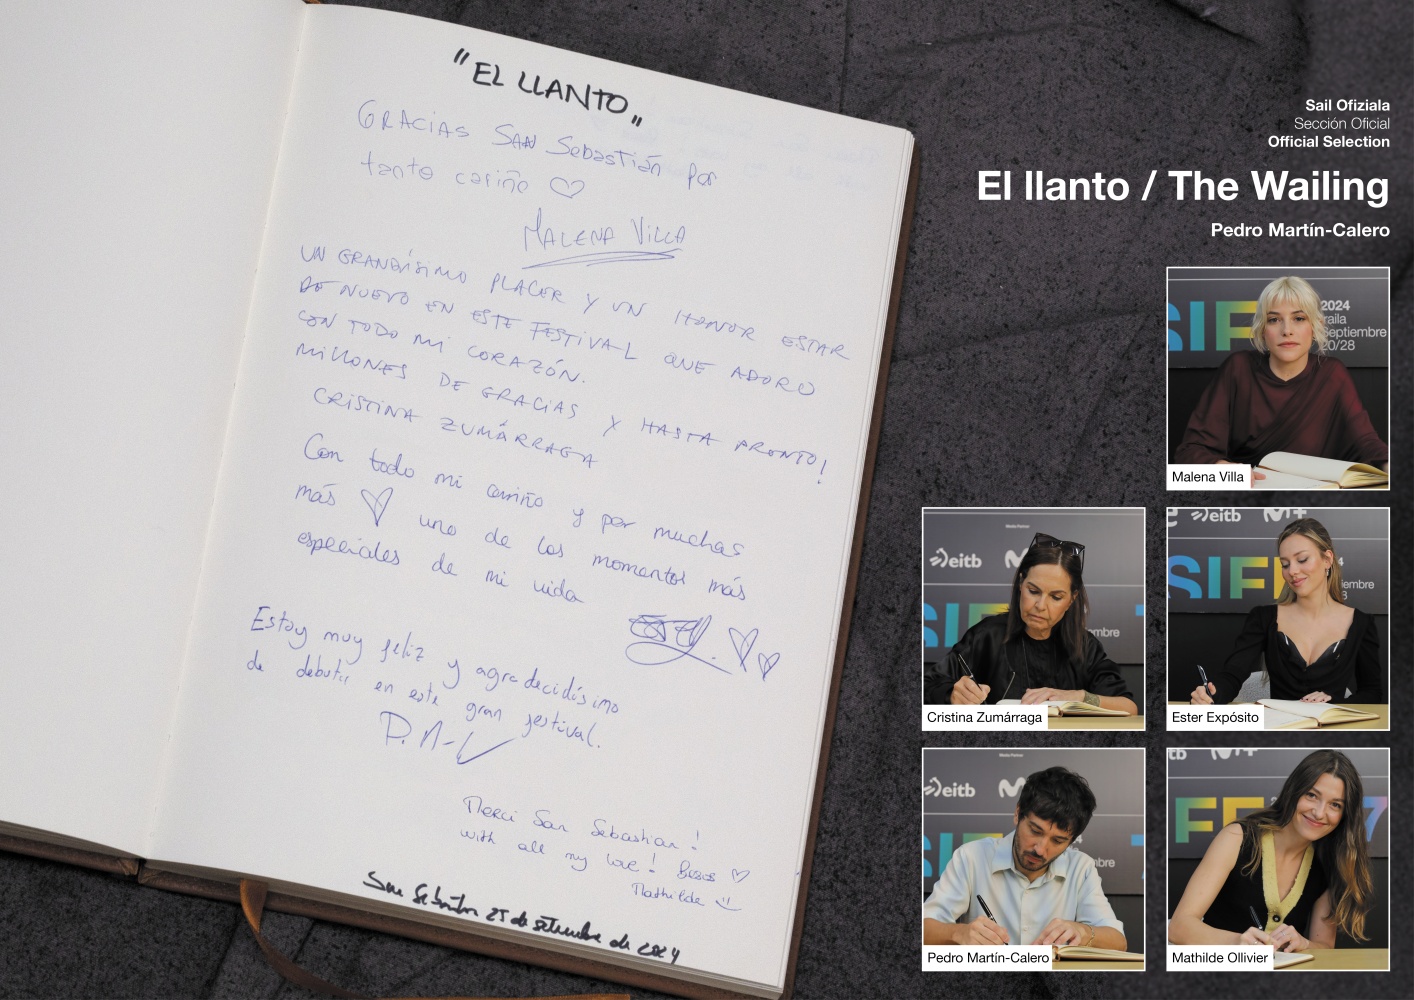 "EL LLANTO"
GRACIAS SAN SebasTián por
tanto cariño ♡
MALENA VILLA
UN GRANDÍSIMO PLACER Y UN HONOR ESTAR
DE NUEVO EN ESTE FESTIVAL QUE ADORO
CON TODO MI CORAZÓN.
MILLONES DE GRACIAS Y HASTA PRONTO!
CRISTINA ZUMÁRRAGA
Con todo mi cariño y por muchas
más ♡ uno de los momentos más
especiales de mi vida
Estoy muy feliz y agradecidísimo
de debutar en este gran festival.
P. M-C
Merci San Sebastian!
with all my love! Besos ♡
Mathilde
San Sebastián 25 de setiembre de 2024
Sail Ofiziala
Sección Oficial
Official Selection
El llanto / The Wailing
Pedro Martín-Calero
SIFF
2024
raila
Septiembre
20/28
Malena Villa
Media Partner
eitb
M
SIF
embre
Cristina Zumárraga
eitb
M+
SIFF
iembre
Ester Expósito
Media Partner
eitb
M
SI
embre
Pedro Martín-Calero
itb
M+
FF
7
Mathilde Ollivier